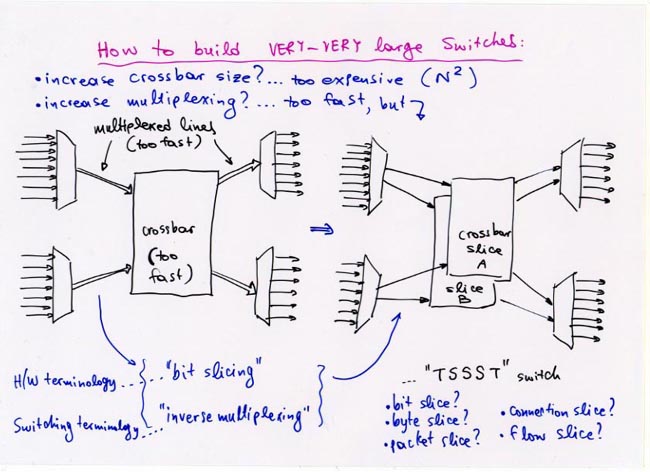 How to build VERY-VERY large Switches:
• increase crossbar size?... too expensive (N²)
• increase multiplexing? ... too fast, but
multiplexed lines
(too fast)
crossbar
(too
fast)
⇒
crossbar
slice
A
slice
B
H/W terminology... ..."bit slicing"
Switching terminology... "inverse multiplexing"
... "TSSST" switch
• bit slice?
• byte slice?
• packet slice?
• connection slice?
• flow slice?